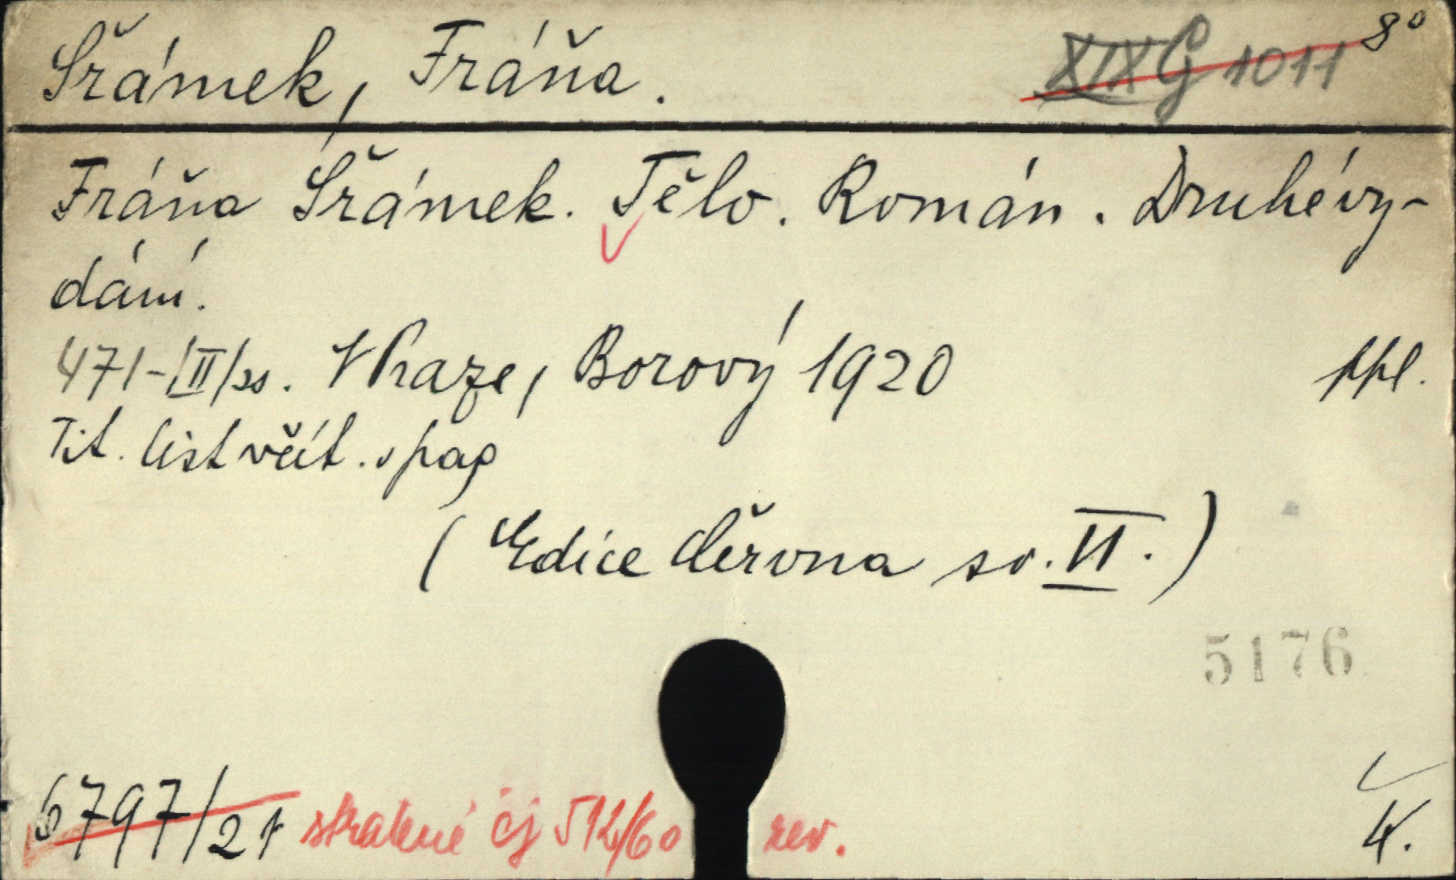 Šrámek, Fráňa. XIX G 1011 8°
Fráňa Šrámek. Tělo. Román. Druhé vy-
dání.
471-|II| ss. V Praze, Borový 1920 ppl.
Tit. list včít. v pag
(Edice Června sv. VI.)
5176
6797/21 stratené čj 512/60 rev. K.